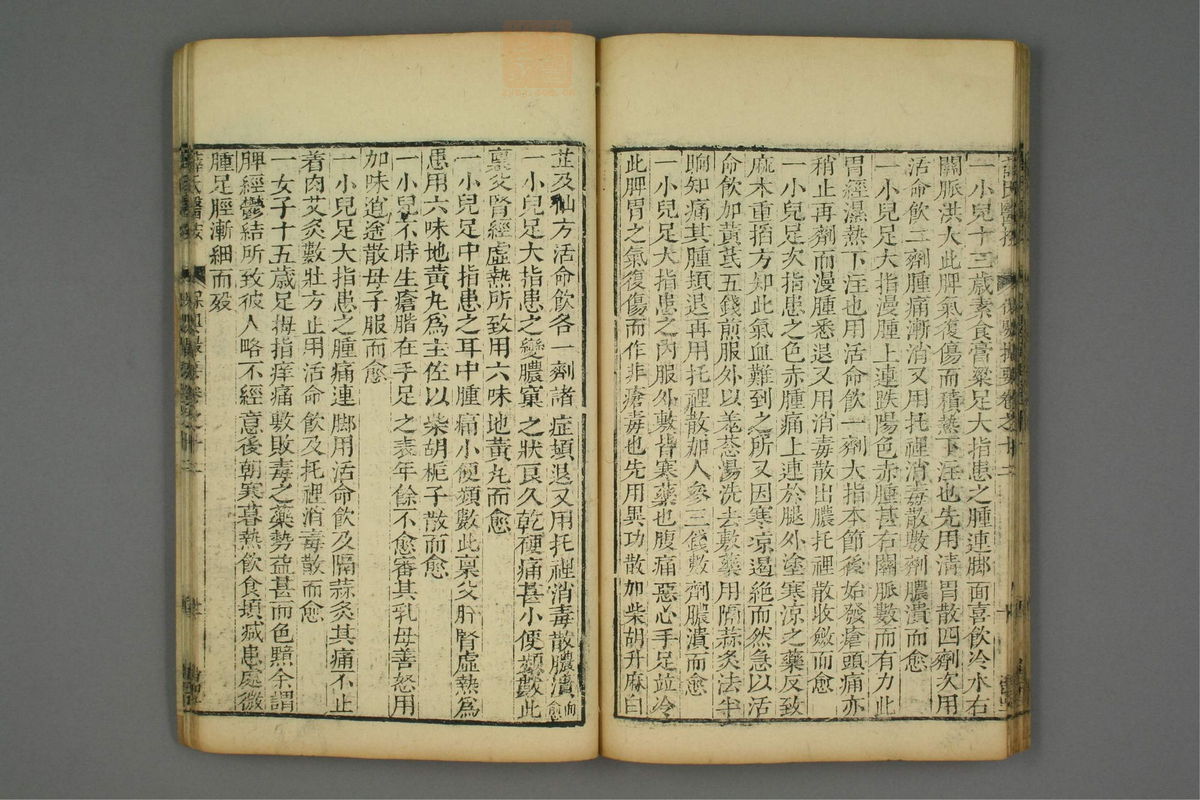 一小兒十三歲素食膏粱足大指患之腫連脚面喜飲冷水右
關脈洪大此脾氣復傷而積熱下注也先用清胃散四劑次用
活命飲二劑腫痛漸消又用托裡消毒散數劑膿潰而愈
一小兒足大指漫腫上連跌陽色赤腫甚右關脈數而有力此
胃經濕熱下注也用活命飲一劑大指本節後始發瘡頭痛亦
稍止再劑而漫腫悉退又用消毒散出膿托裡散收斂而愈
一小兒足次指患之色赤腫痛上連於腿外塗寒涼之藥反致
麻木重搯方知此氣血難到之所又因寒凉遏絶而然急以活
命飲加黃芪五錢煎服外以葱湯洗去敷藥用隔蒜灸法半
晌知痛其腫頓退再用托裡散加人參三錢數劑膿潰而愈
一小兒足大指患之內服外敷皆寒藥也腹痛惡心手足並冷
此脾胃之氣復傷而作非瘡毒也先用異功散加柴胡升麻白
芷及仙方活命飲各一劑諸症頓退又用托裡消毒散膿潰而愈
一小兒足大指患之變膿窠之狀良久乾硬痛甚小便頻數此
稟父腎經虛熱所致用六味地黃丸而愈
一小兒足中指患之耳中腫痛小便頻數此稟父肝腎虛熱爲
患用六味地黃丸爲主佐以柴胡梔子散而愈
一小兒不時生瘡脂在手足之表年餘不愈審其乳母善怒用
加味逍遙散母子服而愈
一小兒足大指患之腫痛連脚用活命飲及隔蒜灸其痛不止
着肉艾灸數壯方止用活命飲及托裡消毒散而愈
一女子十五歲足拇指痒痛敷敗毒之藥勢益甚而色黯余謂
脾經鬱結所致彼人略不經意後朝寒暮熱飲食頓減患處微
腫足脛漸細而歿
薛氏醫按